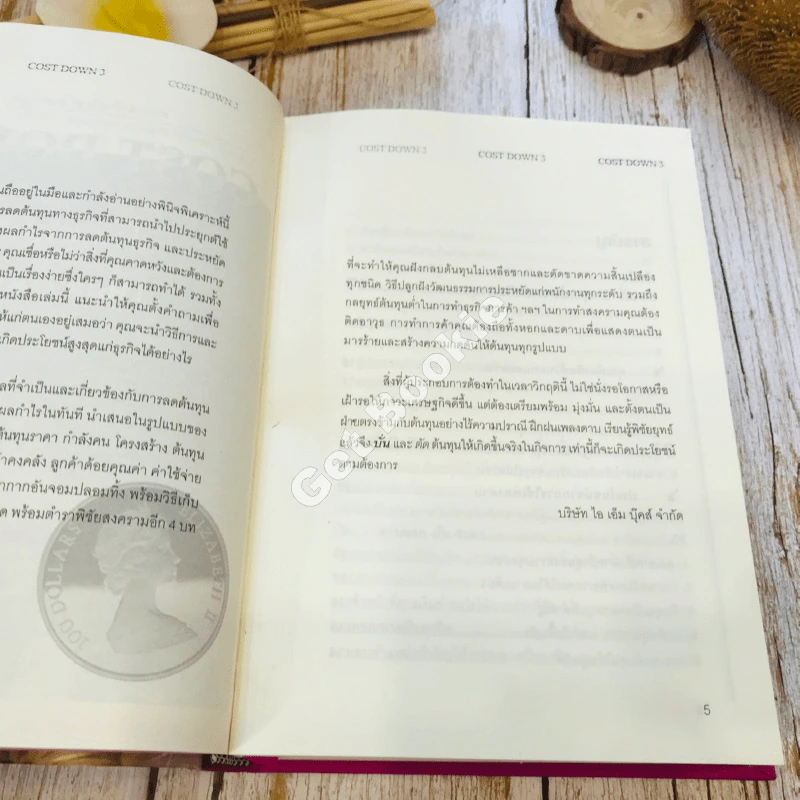 COST DOWN 3
COST DOWN 3
นถืออยู่ในมือและกำลังอ่านอย่างพินิจพิเคราะห์นี้
ารลดต้นทุนทางธุรกิจที่สามารถนำไปประยุกต์ใช้
งผลกำไรจากการลดต้นทุนธุรกิจ และประหยัด
คุณเชื่อหรือไม่ว่าสิ่งที่คุณคาดหวังและต้องการ
เป็นเรื่องง่ายซึ่งใครๆ ก็สามารถทำได้ รวมทั้ง
หนังสือเล่มนี้ แนะนำให้คุณตั้งคำถามเพื่อ
ให้แก่ตนเองอยู่เสมอว่า คุณจะนำวิธีการและ
เกิดประโยชน์สูงสุดแก่ธุรกิจได้อย่างไร
ลที่จำเป็นและเกี่ยวข้องกับการลดต้นทุน
ผลกำไรในทันที นำเสนอในรูปแบบของ
ต้นทุนราคา กำลังคน โครงสร้าง ต้นทุน
าคงคลัง ลูกค้าด้อยคุณค่า ค่าใช้จ่าย
ากากอันจอมปลอมทิ้ง พร้อมวิธีเก็บ
ด พร้อมตำราพิชัยสงครามอีก 4 บท
100 DOLLARS
ELIZABETH II
COST DOWN 3
COST DOWN 3
COST DOWN 3
ที่จะทำให้คุณฝังกลบต้นทุนไม่เหลือซากและตัดขาดความสิ้นเปลือง
ทุกชนิด วิธีปลูกฝังวัฒนธรรมการประหยัดแก่พนักงานทุกระดับ รวมถึง
กลยุทธ์ต้นทุนต่ำในการทำธุรกิจการค้า ฯลฯ ในการทำสงครามคุณต้อง
ติดอาวุธ การทำการค้าคุณต้องถือทั้งหอกและดาบเพื่อแสดงตนเป็น
มารร้ายและสร้างความกดดันให้ต้นทุนทุกรูปแบบ
สิ่งที่ผู้ประกอบการต้องทำในเวลาวิกฤตินี้ ไม่ใช่นั่งรอโอกาสหรือ
เฝ้ารอให้ภาวะเศรษฐกิจดีขึ้น แต่ต้องเตรียมพร้อม มุ่งมั่น และตั้งตนเป็น
ฝ่ายตรงข้ามกับต้นทุนอย่างไร้ความปรานี ฝึกฝนเพลงดาบ เรียนรู้พิชัยยุทธ์
แล้วจึง บั่น และ ตัด ต้นทุนให้เกิดขึ้นจริงในกิจการ เท่านี้ก็จะเกิดประโยชน์
ตามต้องการ
บริษัท ไอ เอ็ม บุ๊คส์ จำกัด
Get Bookie
5